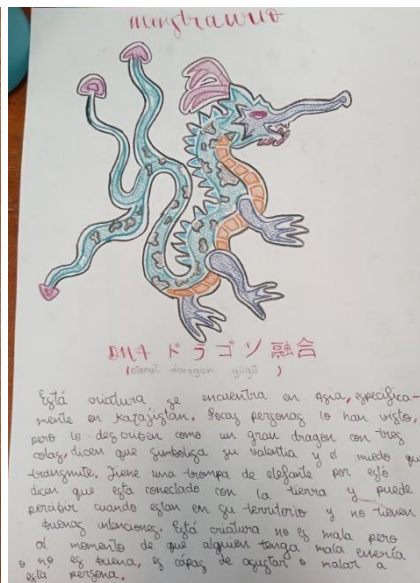 DNA ドラゴン融合
doragon yūgō )
Está criatura se encuentra en Asia, específica-
mente en Kazajistán. Pocas personas lo han visto,
pero lo describen como un gran dragon con tres
colas, dicen que simboliza su valentia y el miedo que
transmite. Tiene una trompa de elefante por esto
dicen que esta conectado con la tierra y puede
percibir cuando estan en su territorio y no tienen
buenas intenciones. Está criatura no es mala pero
al momento de que alguien tenga mala energía
o no es buena, es capaz de asustar o matar a
esta persona.